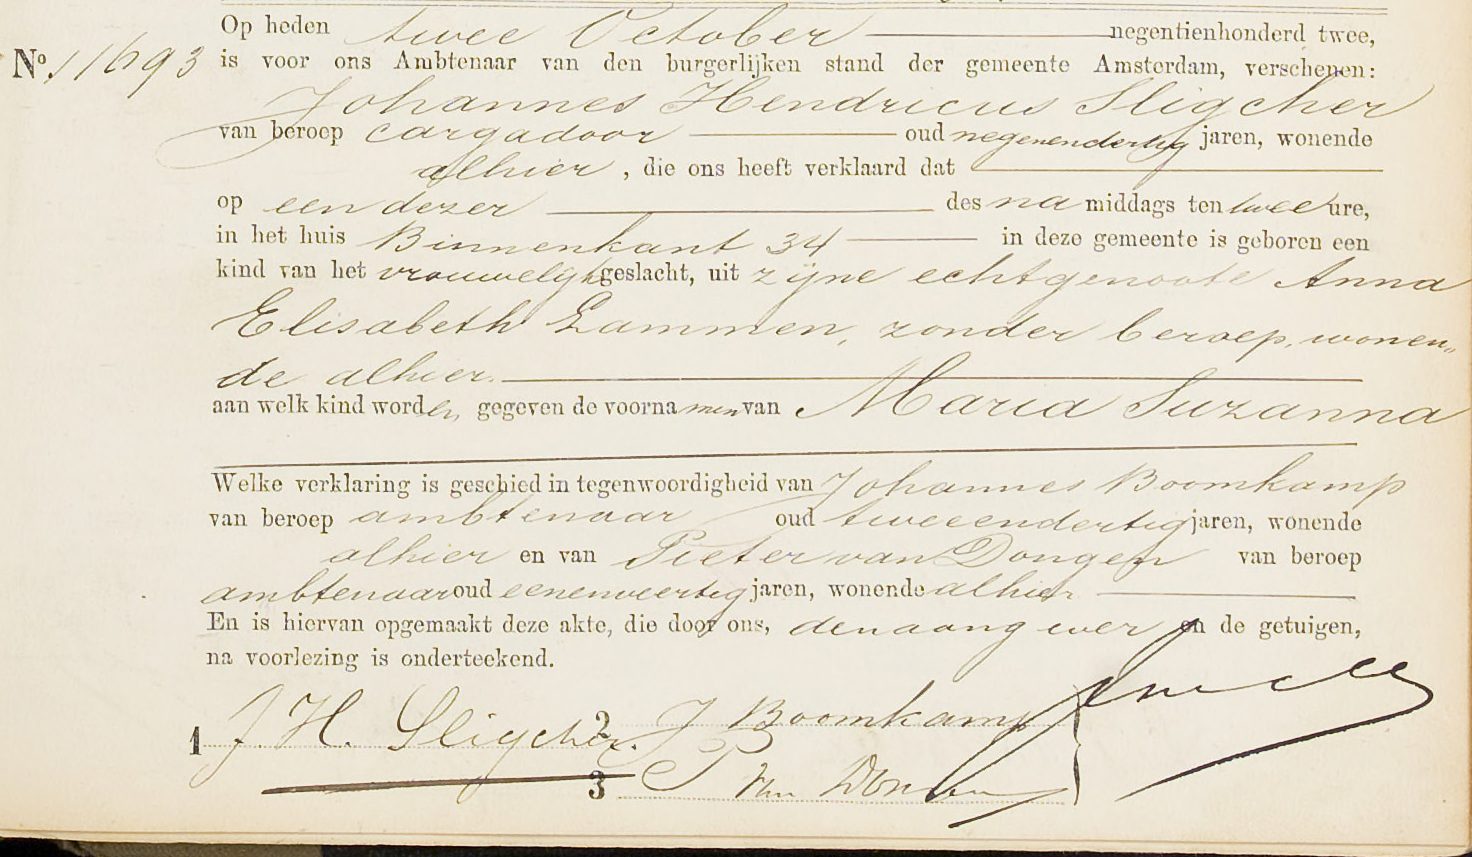 Op heden twee October negentienhonderd twee,
No. 11693 is voor ons Ambtenaar van den burgerlijken stand der gemeente Amsterdam, verschenen:
Johannes Hendricus Sligcher
van beroep cargadoor oud negenendertig jaren, wonende
alhier, die ons heeft verklaard dat
op een dezer des na middags ten twee ure,
in het huis Binnenkant 34 in deze gemeente is geboren een
kind van het vrouwelijk geslacht, uit zijne echtgenoote Anna
Elisabeth Lammen, zonder beroep, wonen„
de alhier.
aan welk kind worden gegeven de voornamen van Maria Suzanna
Welke verklaring is geschied in tegenwoordigheid van Johannes Boomkamp
van beroep ambtenaar oud tweeendertig jaren, wonende
alhier en van Pieter van Dongen van beroep
ambtenaar oud eenenveertig jaren, wonende alhier
En is hiervan opgemaakt deze akte, die door ons, den aangever en de getuigen,
na voorlezing is onderteekend.
1 J. H. Sligcher. 2 J Boomkamp
3 P van Dongen